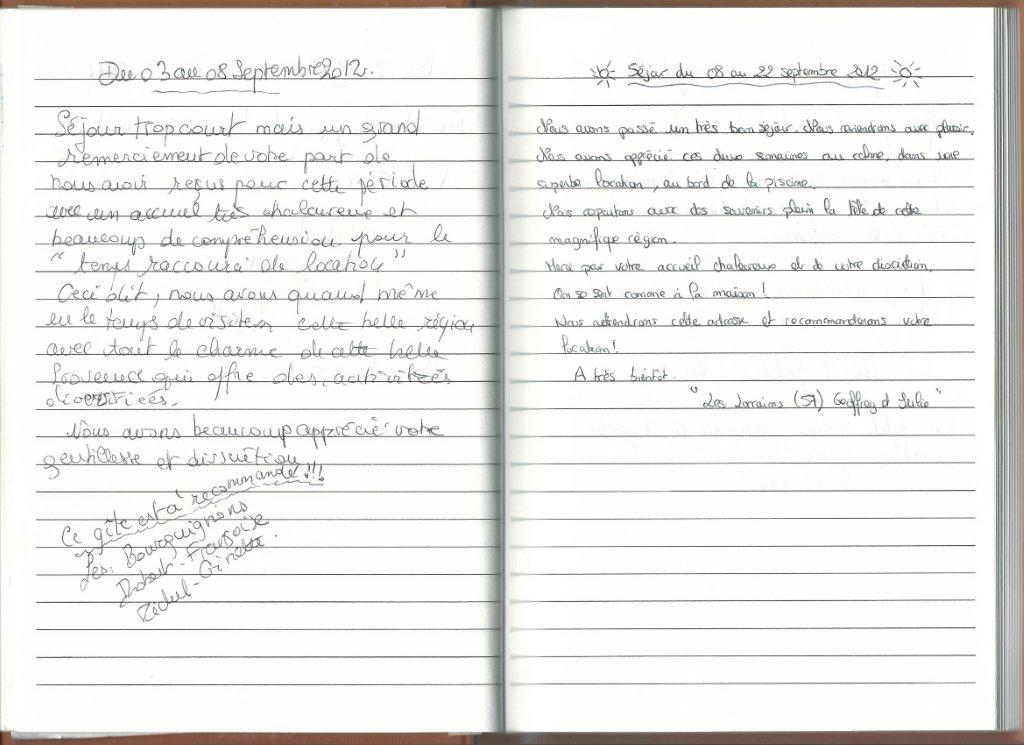 Du 03 au 08 Septembre 2012.
Séjour trop court mais un grand
remerciement de votre part de
nous avoir reçus pour cette période
avec un accueil très chaleureux et
beaucoup de compréhension pour le
"temps raccourci de location"
Ceci dit, nous avons quand même
eu le temps de visiter cette belle région
avec tout le charme de cette belle
Provence qui offre des activités
diversifiées.
Nous avons beaucoup apprécié votre
gentillesse et discrétion
Ce gîte est à recommandé !!!
Les: Bourguignons
Robert - Françoise
Michel - Ginette.
Séjour du 08 au 22 septembre 2012
Nous avons passé un très bon séjour. Nous reviendrons avec plaisir.
Nous avons apprécié ces deux semaines au calme, dans une
superbe location, au bord de la piscine.
Nous repartons avec des souvenirs plein la tête de cette
magnifique région.
Merci par votre accueil chaleureux et de votre discrétion.
On se sent comme à la maison !
Nous retiendrons cette adresse et recommanderons votre
location !
A très bientôt.
"Les Lorrains (57) Geoffrey et Julie"